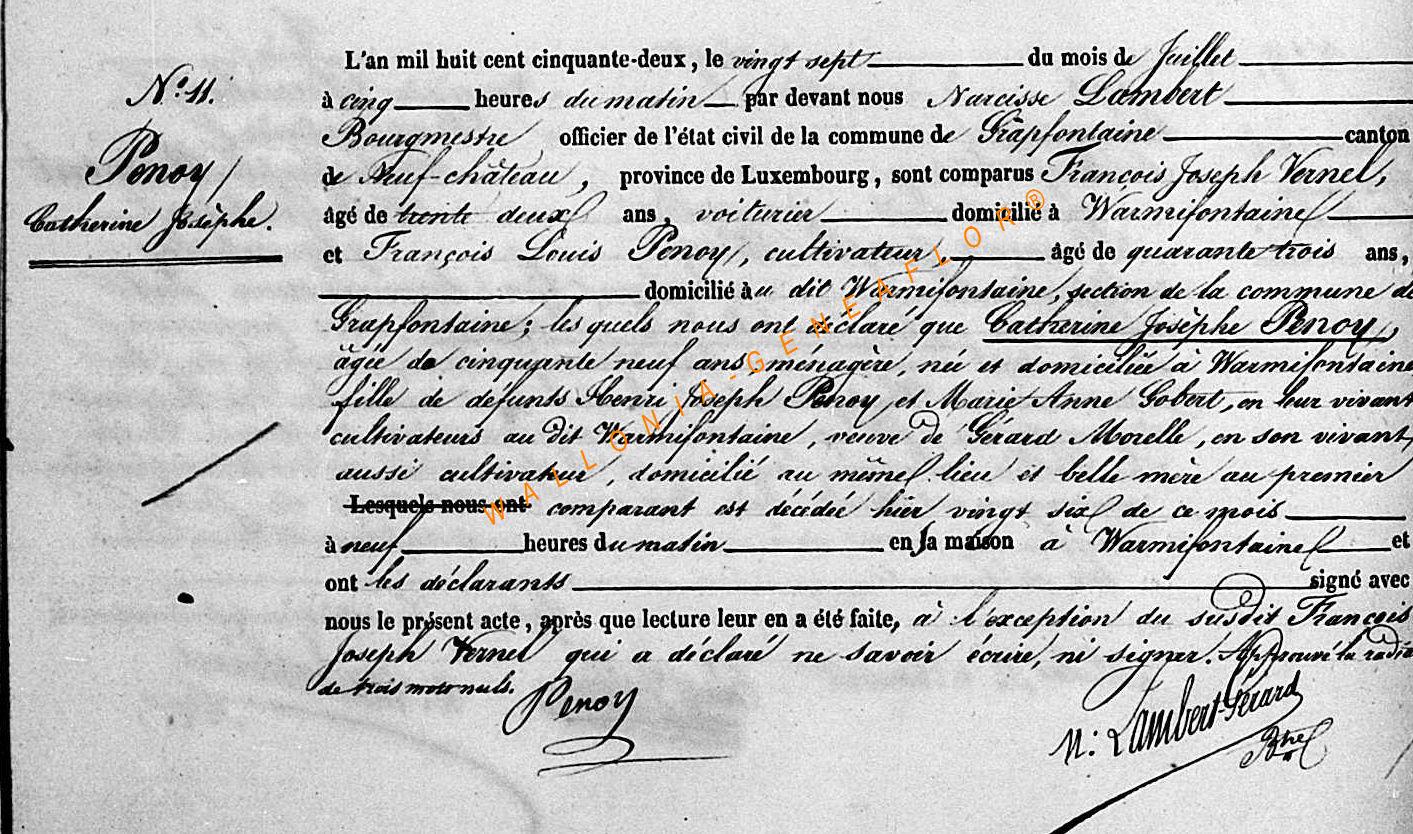 N.° 11.
Penoy
Catherine Josèphe.
L'an mil huit cent cinquante-deux, le vingt sept du mois de Juillet
à cinq heures du matin par devant nous Narcisse Lambert
Bourgmestre officier de l'état civil de la commune de Grapfontaine canton
de Neuf-château, province de Luxembourg, sont comparus François Joseph Vernel,
âgé de trente deux ans, voiturier domicilié à Warmifontaine
et François Louis Penoy, cultivateur, âgé de quarante trois ans,
domicilié au dit Warmifontaine, section de la commune de
Grapfontaine; les quels nous ont déclaré que Catherine Josèphe Penoy,
âgée de cinquante neuf ans, ménagère, née et domiciliée à Warmifontaine
fille de défunts Henri Joseph Penoy et Marie Anne Gobert, en leur vivant
cultivateurs au dit Warmifontaine, veuve de Gérard Morelle, en son vivant,
aussi cultivateur, domicilié au même lieu et belle mère au premier
Lesquels nous ont comparant est décédée hier vingt six de ce mois
à neuf heures du matin en sa maison à Warmifontaine et
ont les déclarants signé avec
nous le présent acte, après que lecture leur en a été faite, à l'exception du susdit François
Joseph Vernel qui a déclaré ne savoir écrire, ni signer. Approuvé la radia
de trois mots nuls.
Penoy
N: Lambert-Gérard
Bre
WALLONIA-GENEAFLOR®